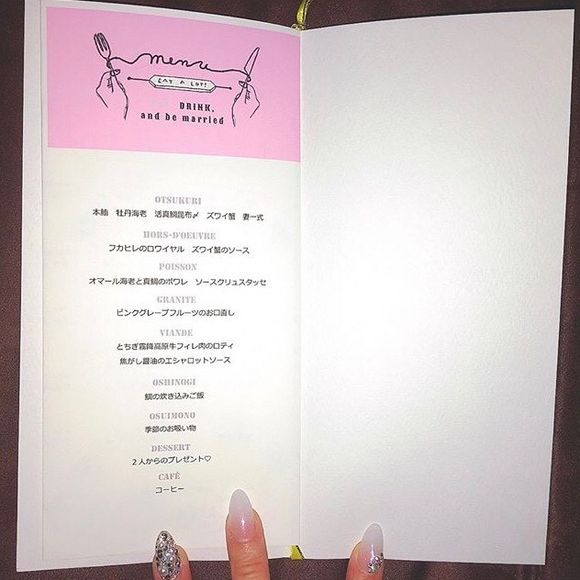 menu
EAT A LOT!
DRINK,
and be married
OTSUKURI
本鮪　牡丹海老　活真鯛昆布〆　ズワイ蟹　妻一式
HORS-D'OEUVRE
フカヒレのロワイヤル　ズワイ蟹のソース
POISSON
オマール海老と真鯛のポワレ　ソースクリュスタッセ
GRANITE
ピンクグレープフルーツのお口直し
VIANDE
とちぎ霧降高原牛フィレ肉のロティ
焦がし醤油のエシャロットソース
OSHINOGI
鯛の炊き込みご飯
OSUIMONO
季節のお吸い物
DESSERT
２人からのプレゼント♡
CAFÉ
コーヒー